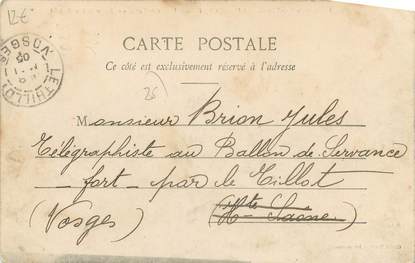 12€
CARTE POSTALE
Ce côté est exclusivement réservé à l'adresse
LE THILLOT
VOSGES
05
25
Monsieur Brion Jules
Télégraphiste au Ballon de Servance
fort par le Tillot
(Vosges) (Hte Saone)